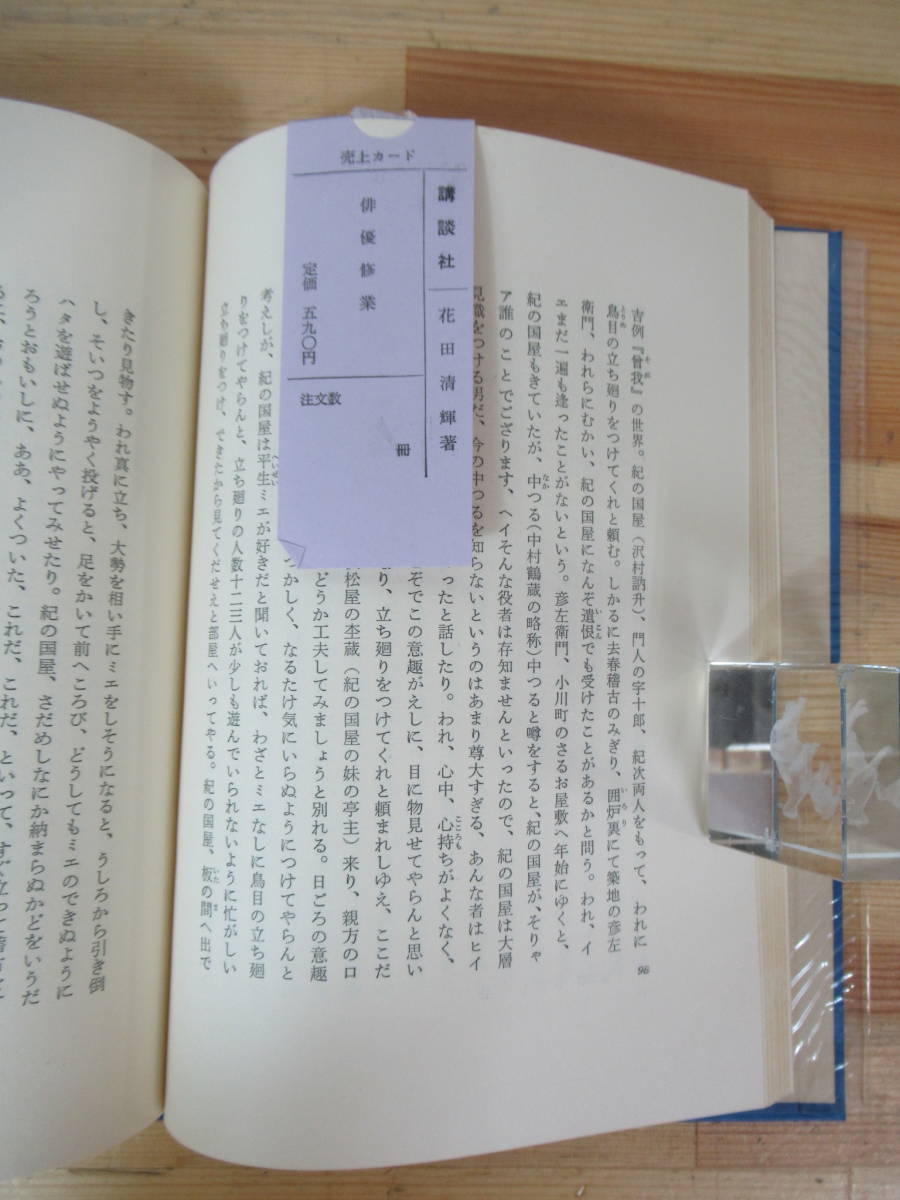 売上カード
講談社
花田清輝著
俳優修業
定価 五九〇円
注文数
冊
吉例『曾我』の世界。紀の国屋（沢村訥升）、門人の字十郎、紀次両人をもって、われに
鳥目の立ち廻りをつけてくれと頼む。しかるに去春稽古のみぎり、囲炉裏にて築地の彦左
衛門、われらにむかい、紀の国屋になんぞ遺恨でも受けたことがあるかと問う。われ、イ
エまだ一遍も逢ったことがないという。彦左衛門、小川町のさるお屋敷へ年始にゆくと、
紀の国屋もきていたが、中つる（中村鶴蔵の略称）中つると噂をすると、紀の国屋が、そりゃ
ア誰のことでござります、ヘイそんな役者は存知ませんといったので、紀の国屋は大層
見識をつける男だ、今の中つるを知らないというのはあまり尊大すぎる、あんな者はヒイ
ったと話したり。われ、心中、心持ちがよくなく、
そでこの意趣がえしに、目に物見せてやらんと思い
り、立ち廻りをつけてくれと頼まれしゆえ、ここだ
松屋の杢蔵（紀の国屋の妹の亭主）来り、親方の口
どうか工夫してみましょうと別れる。日ごろの意趣
つかしく、なるたけ気にいらぬようにつけてやらんと
考えしが、紀の国屋は平生ミエが好きだと聞いておれば、わざとミエなしに鳥目の立ち廻
りをつけてやらんと、立ち廻りの人数十二三人が少しも遊んでいられないように忙がしい
立ち廻りをつけ、できたから見てくだせえと部屋へいってやる。紀の国屋、板の間へ出で
96
きたり見物す。われ真に立ち、大勢を相い手にミエをしそうになると、うしろから引き倒
し、そいつをようやく投げると、足をかいて前へころび、どうしてもミエのできぬように
ハタを遊ばせぬようにやってみせたり。紀の国屋、さだめしなにか納まらぬかどをいうだ
ろうとおもいしに、ああ、よくついた、これだ、これだ、といって、すぐ立って着